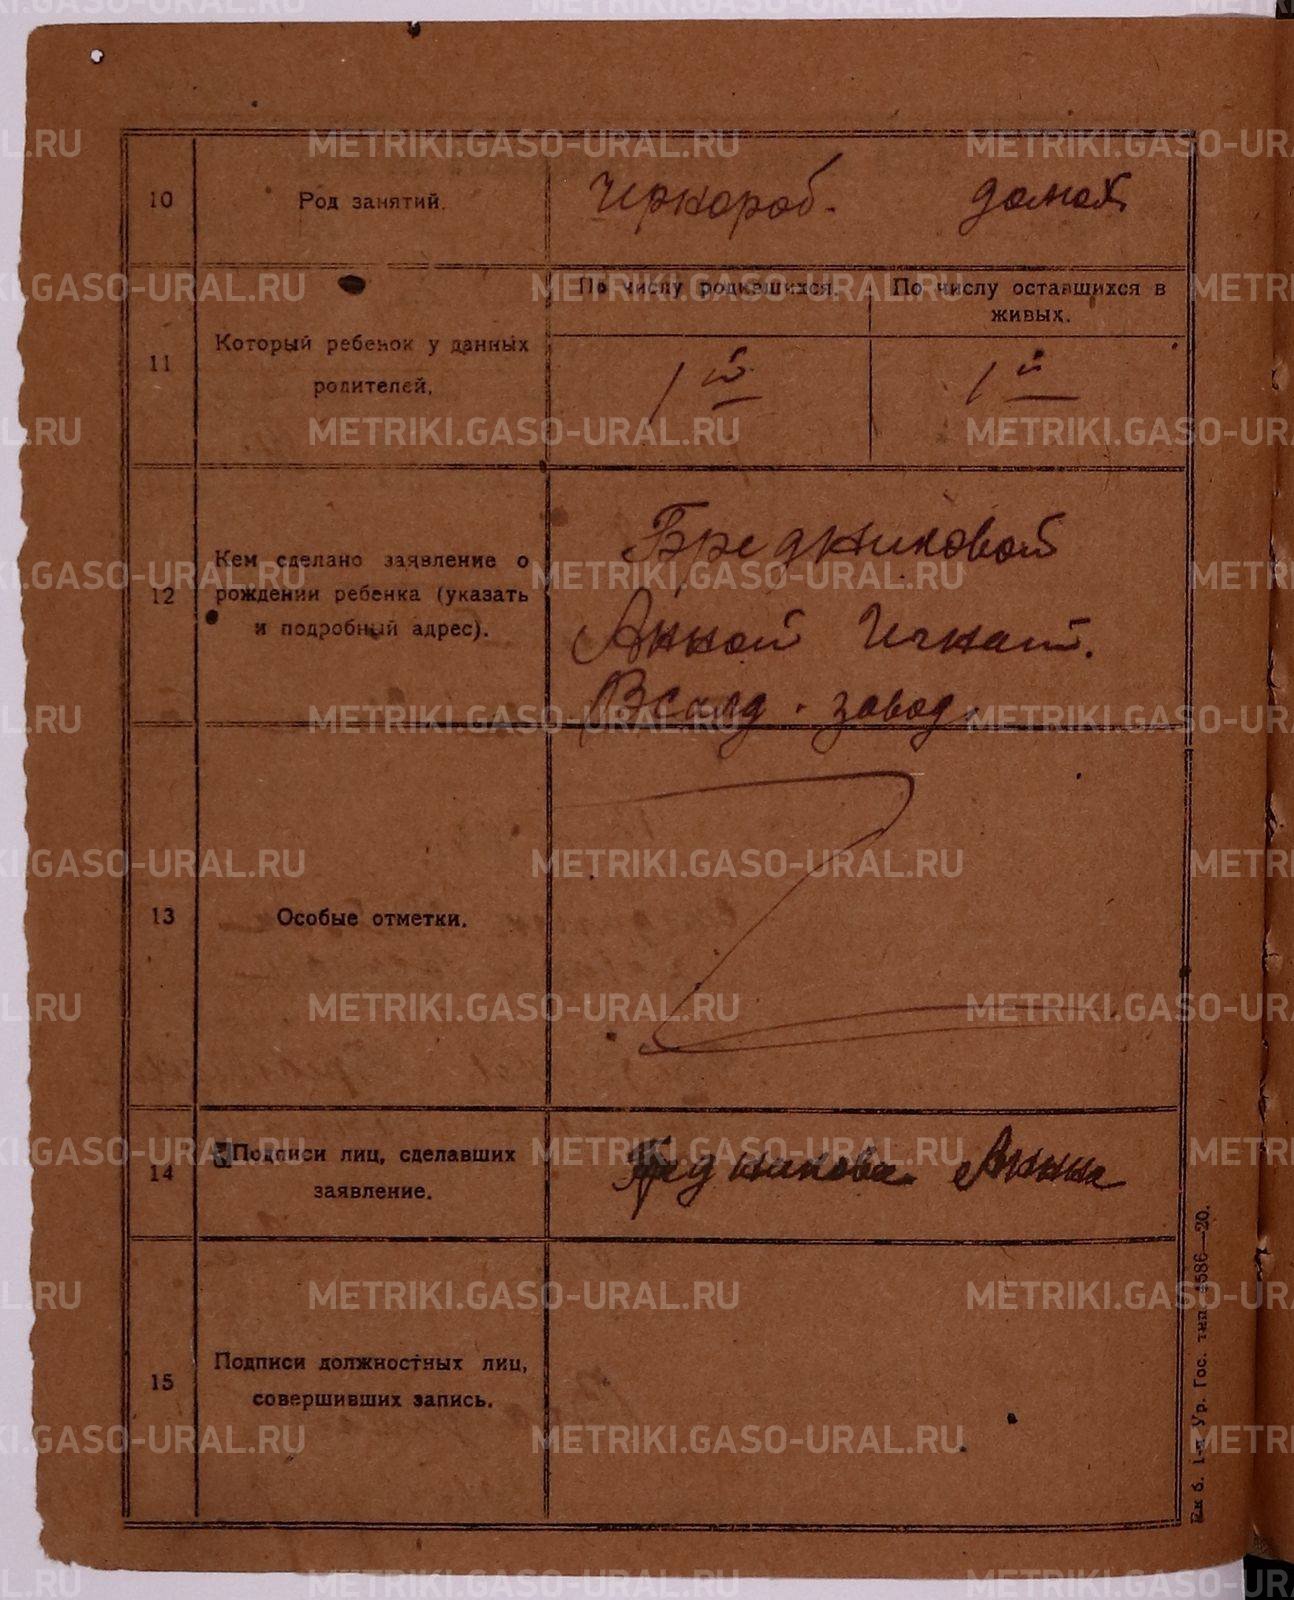 10 Род занятий. Чернораб. домох.
По числу родившихся. По числу оставшихся в
живых.
11 Который ребенок у данных
родителей.
1й 1й
12 Кем сделано заявление о
рождении ребенка (указать
и подробный адрес).
Бредниковой
Анной Игнат.
В Салд. завод.
13 Особые отметки.
14 Подписи лиц, сделавших
заявление.
Бредникова Анна
15 Подписи должностных лиц,
совершивших запись.
Ек б. 1-я Ур. Гос. тип. 4586—20.
METRIKI.GASO-URAL.RU